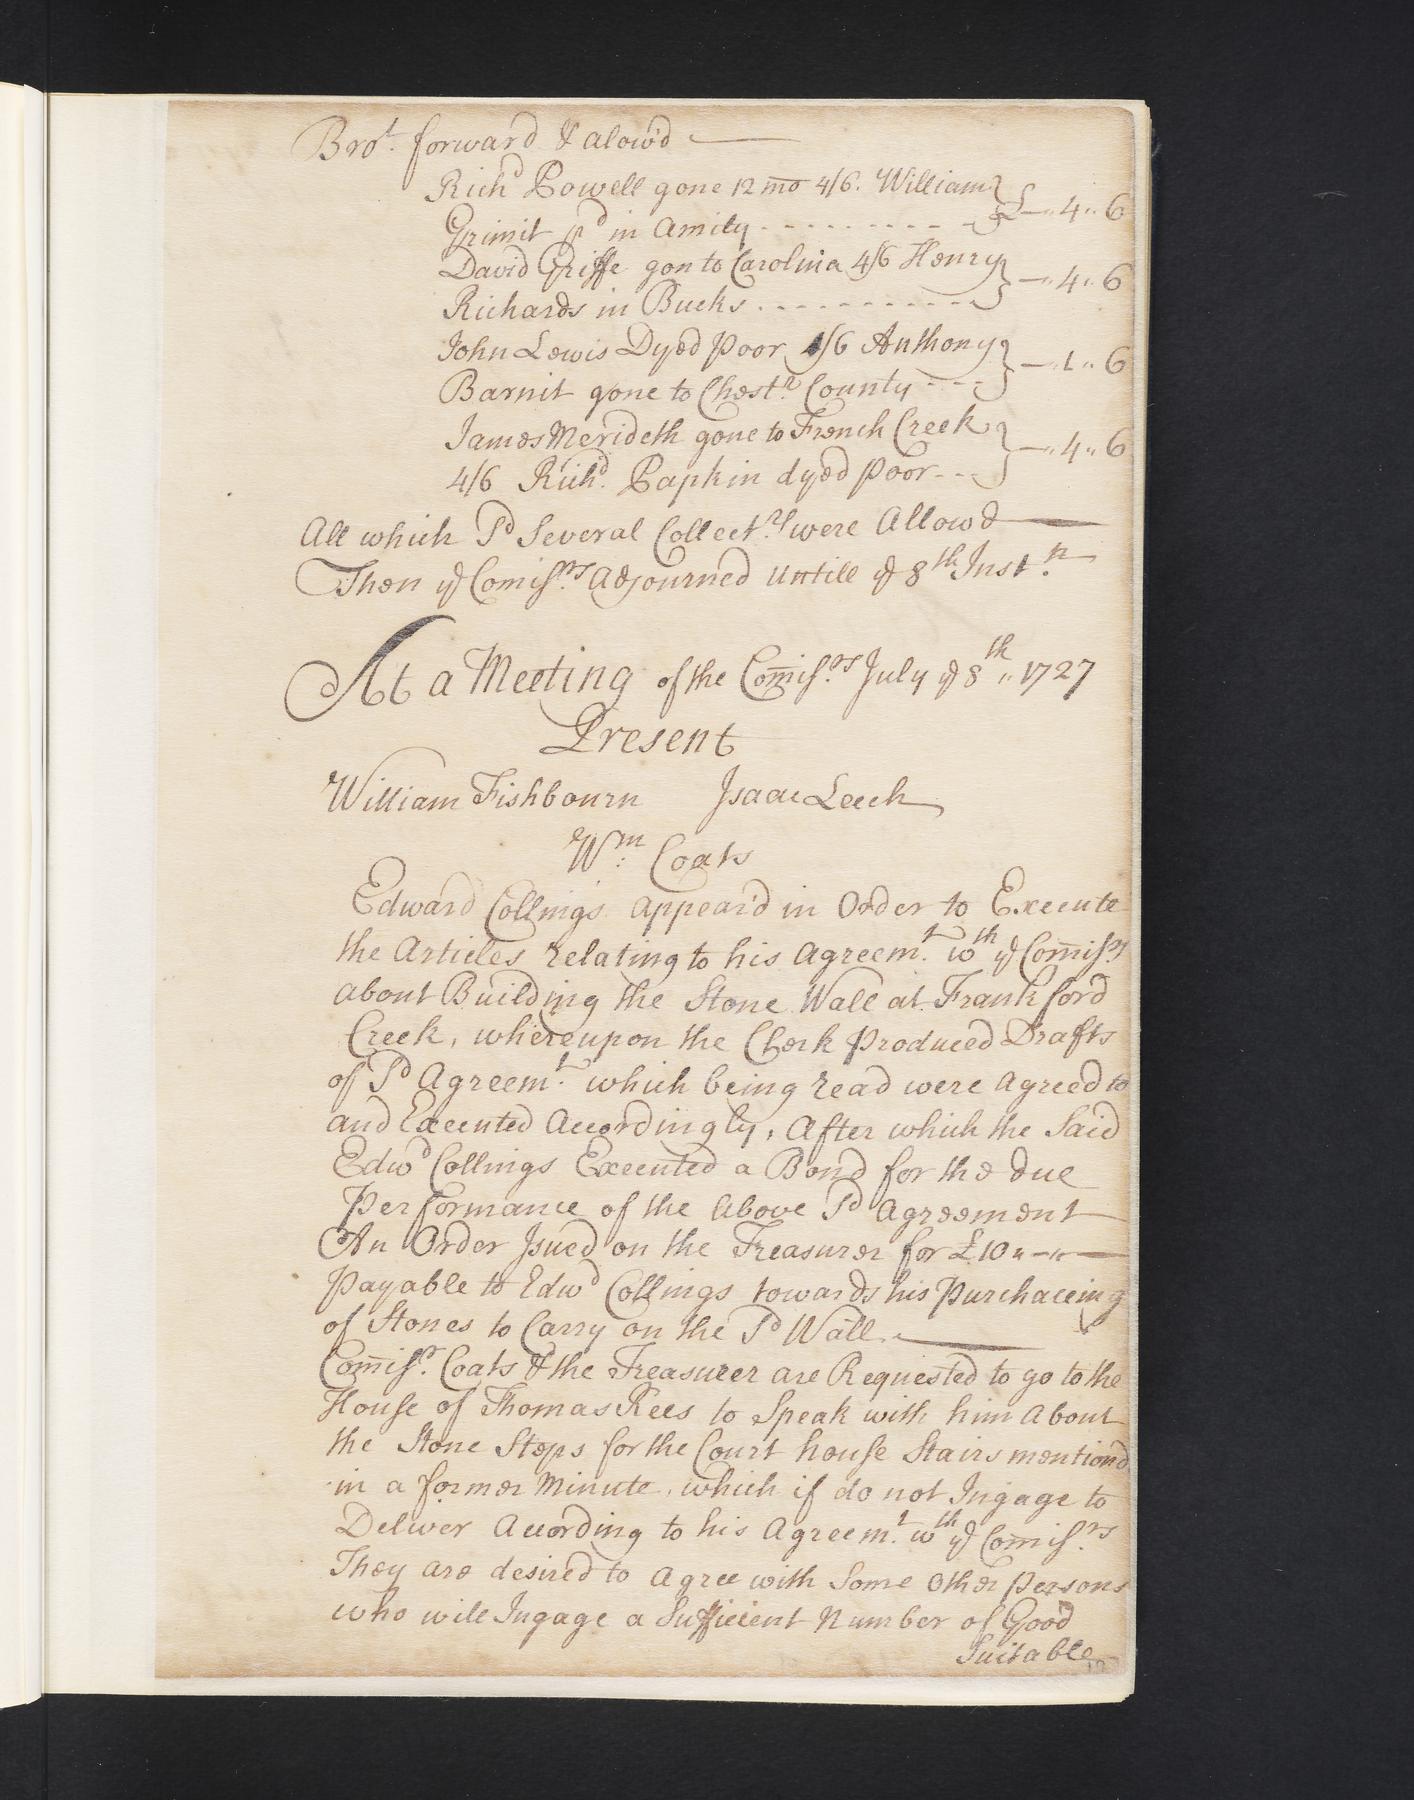 Bro.t forward & alow'd
Rich.d Powell gone 12 mo 4/6. William } £—"4"6
Grimit p.d in Amity - - - - - - - - -
David Griffe gon to Carolina 4/6 Henry } —"4"6
Richards in Bucks - - - - - - - - - -
John Lewis Dyed Poor 1/6 Anthony } —"1"6
Barnit gone to Chest.r County - - -
James Merideth gone to French Creek } —"4"6
4/6 Rich.d Papkin dyed Poor - - -
All which Sd Several Collect.rs were Allowd
Then ye Comiss.rs Adjourned untill ye 8th Inst.
At a Meeting of the Comiss.rs July ye 8th " 1727
Present
William Fishbourn Isaac Leech
Wm: Coats
Edward Collings appear'd in Order to Execute
the Articles relating to his Agreem.t wth ye Comiss.rs
about Building the Stone Wall at Frankford
Creek, whereupon the Clerk Produced Drafts
of Sd Agreem.t which being read were agreed to
and Executed Accordingly, After which the Said
Edwd Collings Executed a Bond for the due
Performance of the Above Sd Agreement
An Order Isued on the Treasurer for £10 " — " —
Payable to Edwd Collings towards his Purchaceing
of Stones to Carry on the Sd Wall
Comiss.r Coats & the Treasurer are Requested to go to the
House of Thomas Rees to Speak with him About
the Stone Steps for the Court house Stairs mentiond
in a former Minute, which if do not Ingage to
Deliver Acording to his Agreem.t wth ye Comiss.rs
They are desired to Agree with Some Other Persons
who will Ingage a Sufficient Number of Good
Suitable